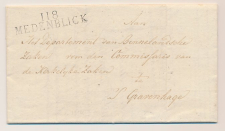 118
MEDENBLICK
Aan
Het Departement van Binnenlandsche
Zaken van den Commissaris van
de
Zaken
S Gravenhage